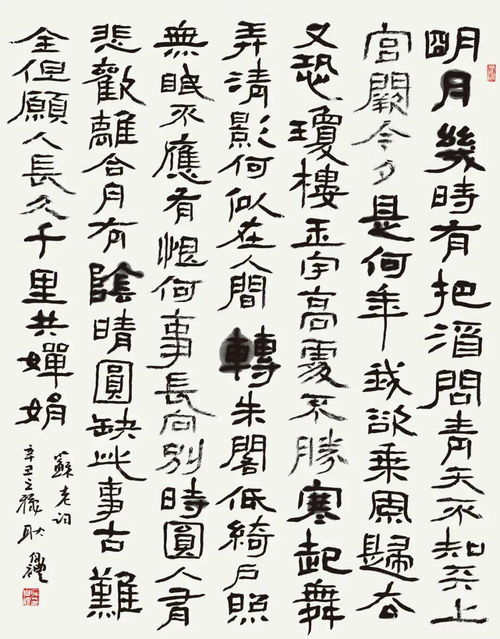 明月幾時有把酒問青天不知天上
宮闕今夕是何年我欲乘風歸去
又恐瓊樓玉宇高處不勝寒起舞
弄清影何似在人間轉朱閣低綺戶照
無眠不應有恨何事長向別時圓人有
悲歡離合月有陰晴圓缺此事古難
全但願人長久千里共嬋娟
蘇老詞
辛丑之 耿